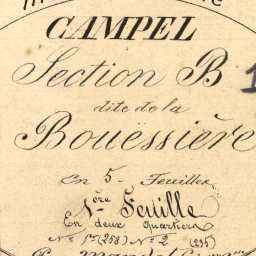 CAMPEL
Section B
dite de la
Bouëssière
En 5 - Feuilles
1ère Feuille
En deux Quartiers
Nos 1er (258) No 2 (295)